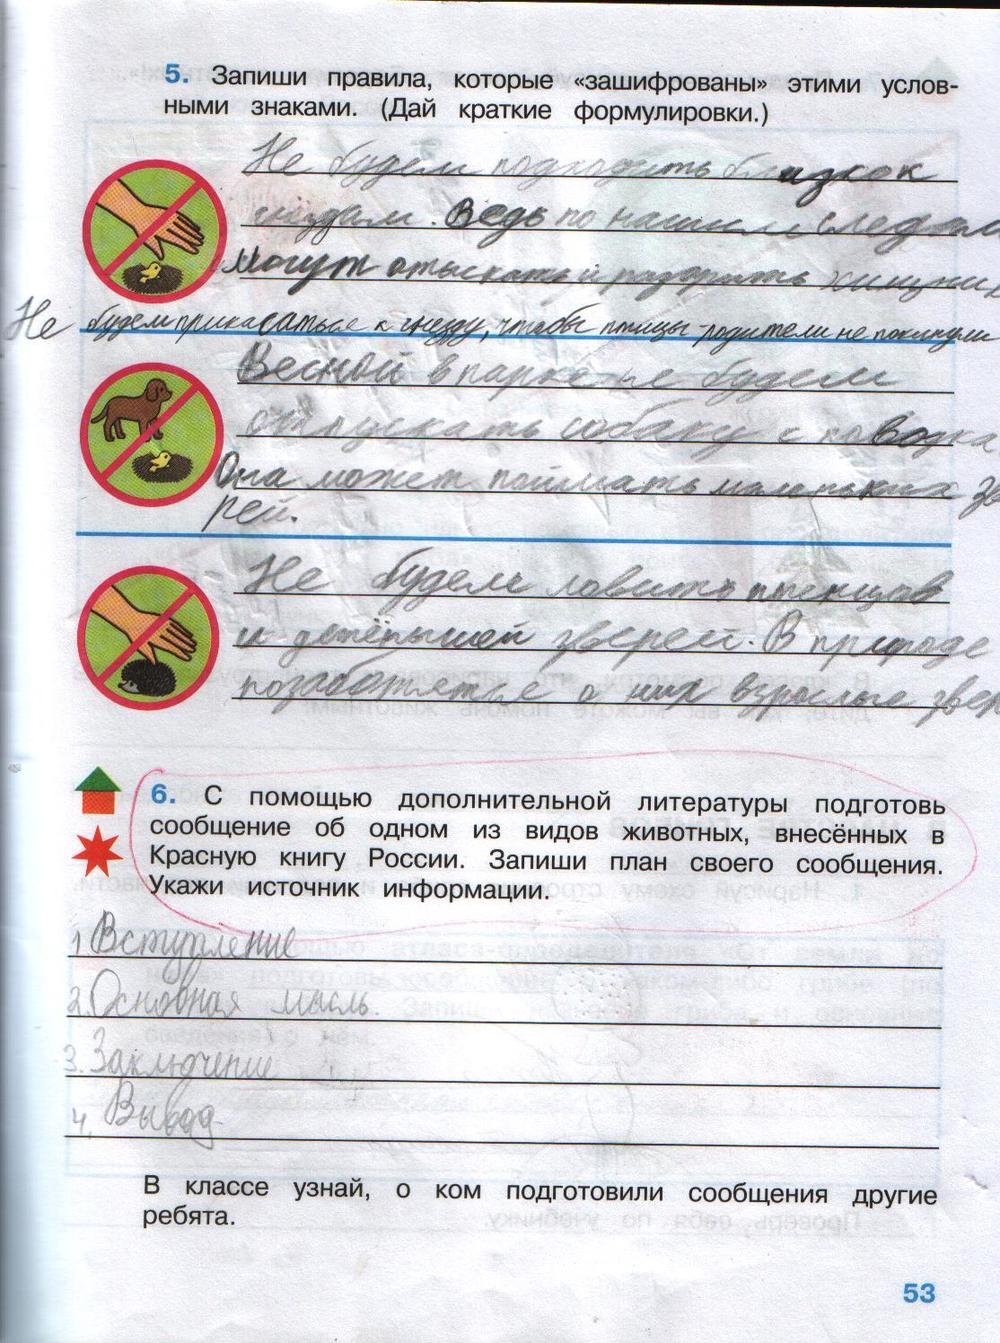 5. Запиши правила, которые «зашифрованы» этими услов-
ными знаками. (Дай краткие формулировки.)
Не будем подходить близкок
гнёздам. Ведь по нашим следам
могут отыскать и разорить хищник
Не будем прикасаться к гнезду, чтобы птицы-родители не покинули
Весной в парке не будем
отпускать собаку с поводка
Она может поймать маленьких зве
рей.
Не будем ловить птенцов
и детёнышей зверей. В природе
позаботятся о них взрослые звер
6. С помощью дополнительной литературы подготовь
сообщение об одном из видов животных, внесённых в
Красную книгу России. Запиши план своего сообщения.
Укажи источник информации.
1. Вступление
2. Основная мысль
3. Заключение
4. Вывод
В классе узнай, о ком подготовили сообщения другие
ребята.
53